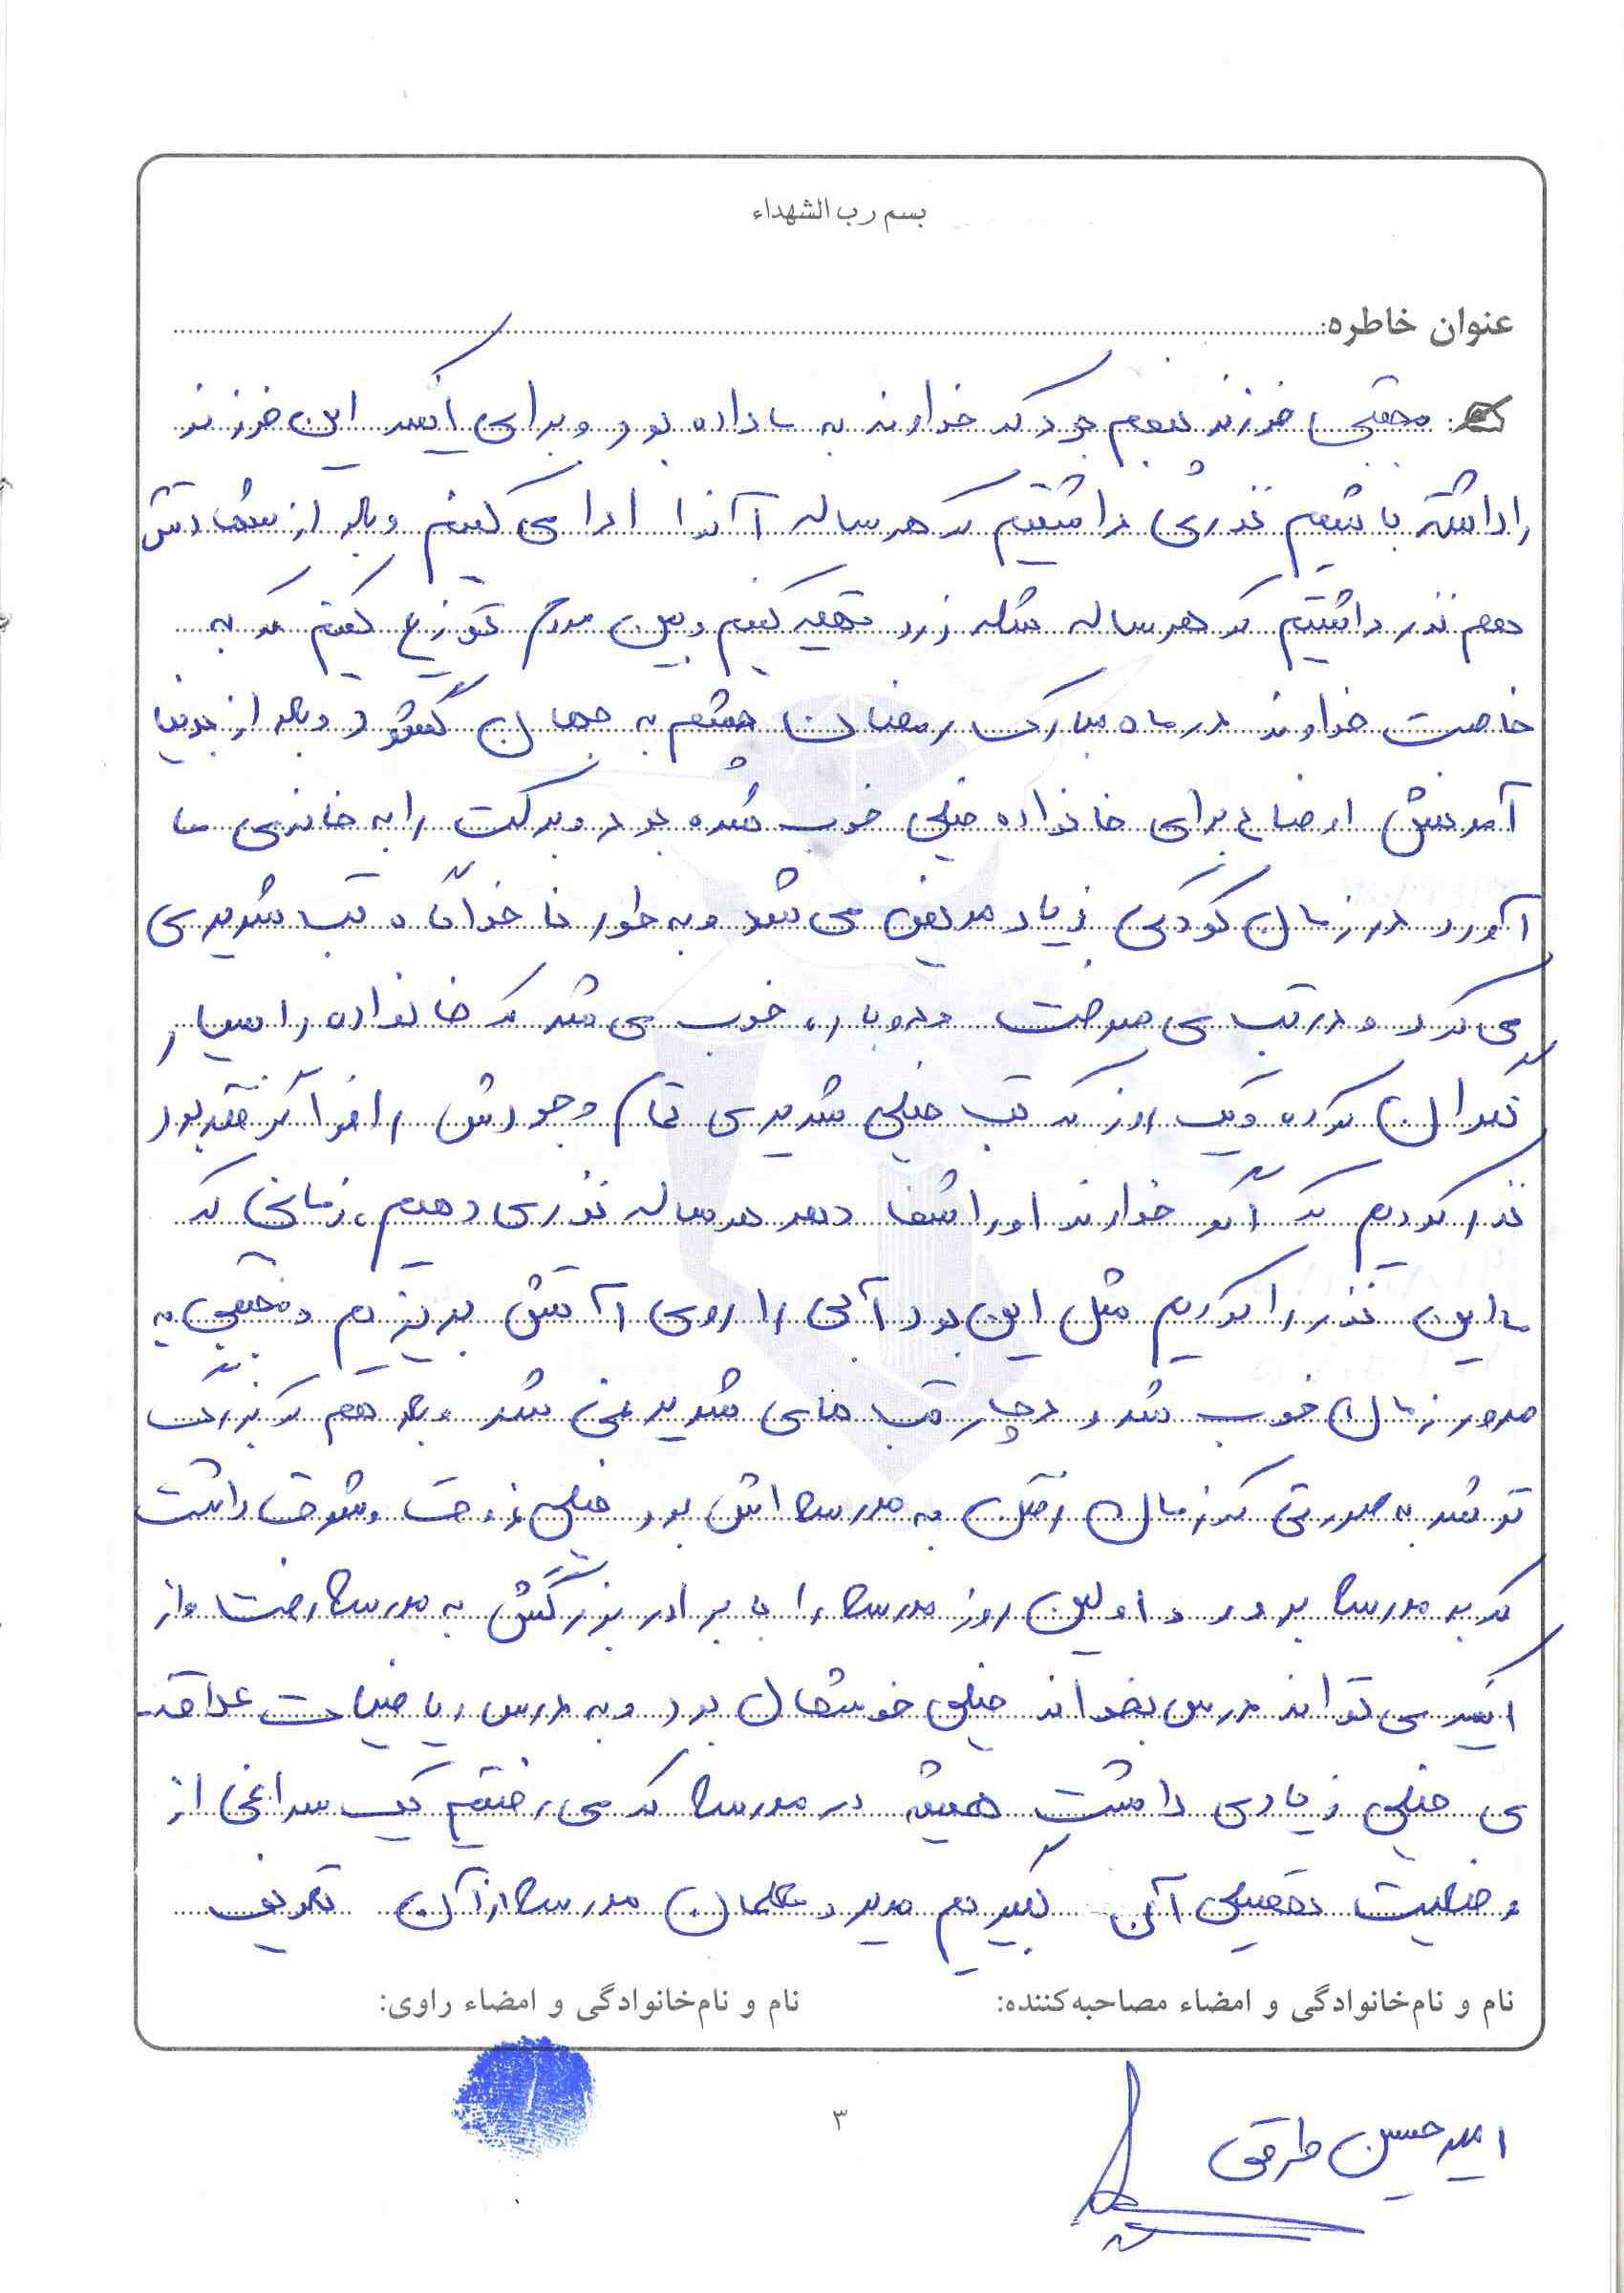 بسم رب الشهداء
عنوان خاطره:
مجتبی فرزند پنجم بود که خداوند به ما داده بود و برای اینکه این فرزند
را داشته باشیم نذری داشتیم که هر ساله آن را ادا می کنیم و بعد از شهادتش
هم نذر داشتیم که هر ساله شله زرد تهیه کنیم و بین مردم توزیع کنیم که به
خاصیت خداوند در ماه مبارک رمضان چشم به جهان گشود و بعد از بدنیا
آمدنش اوضاع برای خانواده خیلی خوب شده بود و برکت را به خانه ی ما
آورد در زمان کودکی زیاد مریض می شد و به طور ناخوآگاه تب شدیدی
می کرد و در تب می سوخت و دوباره خوب می شد که خانواده را بسیار
نگران کرده و یک روز که تب خیلی شدیدی تمام وجودش را فرا گرفته بود
نذر کردیم که اگر خداوند او را شفا دهد هر ساله نذری دهیم، زمانی که
ما این نذر را کردیم مثل این بود آبی را روی آتش بریزیم و مجتبی به
مرور زمان خوب شد و دچار تب های شدید نمی شد و بعد هم که بزرگ
تر شد به صورتی که زمان رفتن به مدرسه اش بود خیلی ذوق و شوق داشت
که به مدرسه برود و اولین روز مدرسه را با برادر بزرگش به مدرسه رفت و از
اینکه می تواند درس بخواند خیلی خوشحال بود و به درس ریاضیات علاقه
ی خیلی زیادی داشت همیشه در مدرسه که می رفتیم یک سراغی از
وضعیت تحصیلی آن بگیریم مدیر و معلمان مدرسه از آن تعریف
نام و نام‌خانوادگی و امضاء مصاحبه‌کننده:
نام و نام‌خانوادگی و امضاء راوی:
امیرحسین طرقی
۳